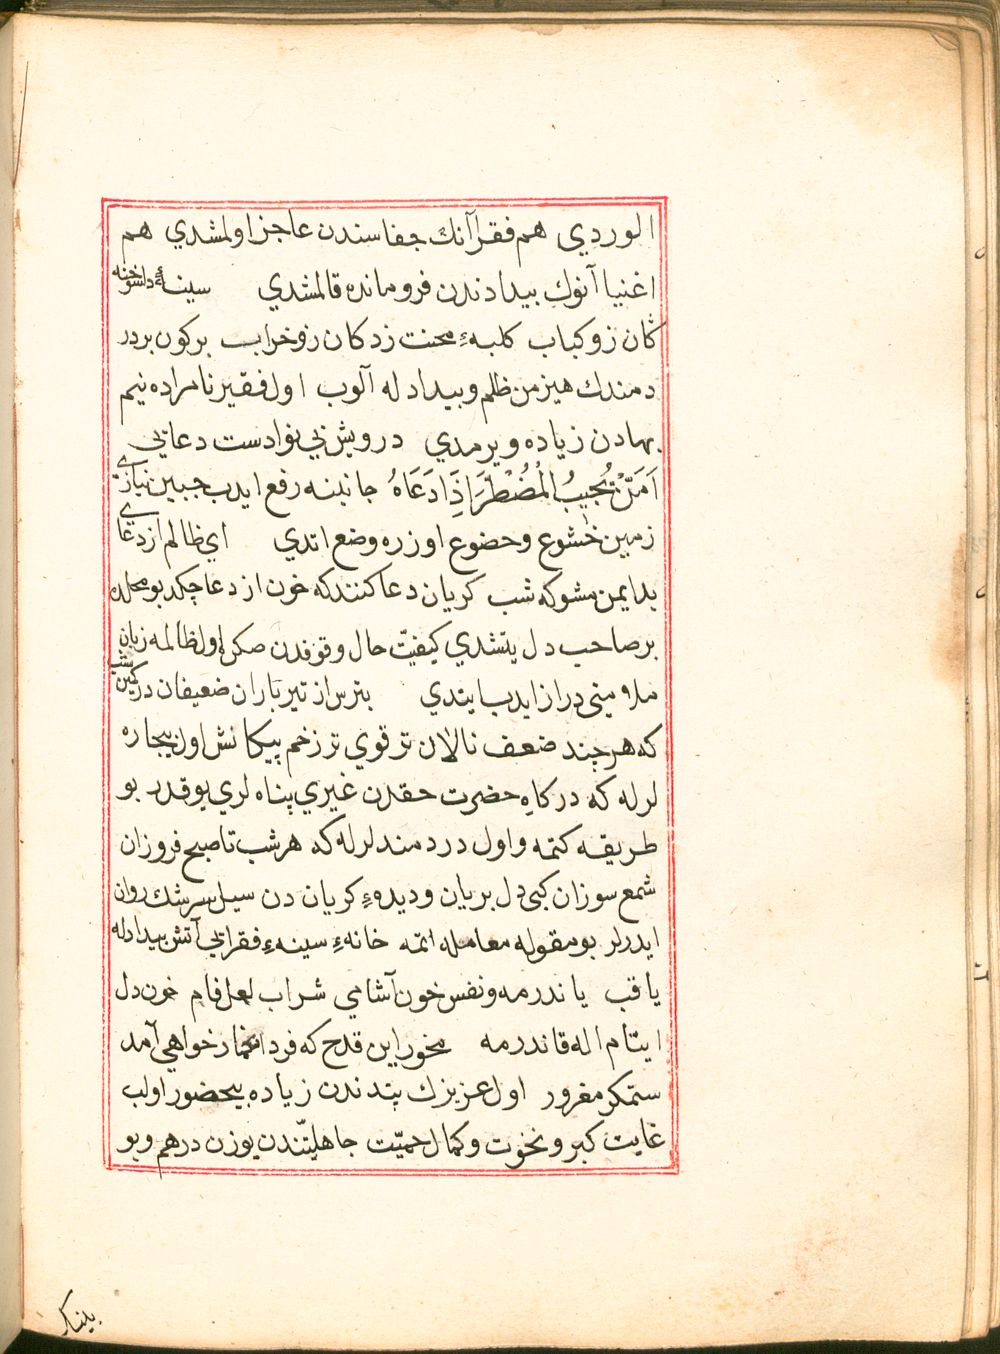 الوردي هم فقرا آنك جفاسندن عاجز اولمشدي هم
اغنيا آنوك بيدادندن فرومانده قالمشدي سينۀ دلسوخته
كان زو كباب كلبهء محنت زدكان زو خراب بركون بر درد
دمندك هيزمن ظلم و بيدادله آلوب اول فقير نامراده نيم
بهادن زياده ويرمدي درويش بي نوا دست دعايى
اَمَّنْ يُجيبُ الْمُضْطَرَّ اِذَا دَعَاهُ جانبنه رفع ايدب جبين نيازى
زمين خشوع و خضوع اوزره وضع اتدي اي ظالم از دعاى
بد ايمن مشو كه شب كريان دعا كنند كه خون از دعا چكد بو محلده
بر صاحب دل يتشدي كيفيّت حال وقوفدن صكره اول ظالمه زبان
ملامتى دراز ايدب ايتدي بترس از تير باران ضعيفان در كمين شب
كه هر چند ضعف نالان تر قوي تر زخم پيكانش اول بيچاره
لرله كه دركاه حضرت حقدن غيري پناه لري يوقدر بو
طريقه كتمه و اول دردمندلرله كه هر شب تا صبح فروزان
شمع سوزان كبى دل بريان و ديدهء كريان دن سيل سرشك روان
ايدرلر بو مقوله معامله اتمه خانهء سينهء فقرايى آتش بيدادله
ياقب ياندرمه و نفس خون آشامي شراب لعل فام خون دل
ايتام اله قاندرمه مخور اين قدح كه فردا بخمار خواهي آمد
ستمكر مغرور اول عزيزك پندندن زياده بيحضور اولب
غايت كبر و نخوت و كمال حميّت جاهليّتندن يوزن درهم و بو
بلينك